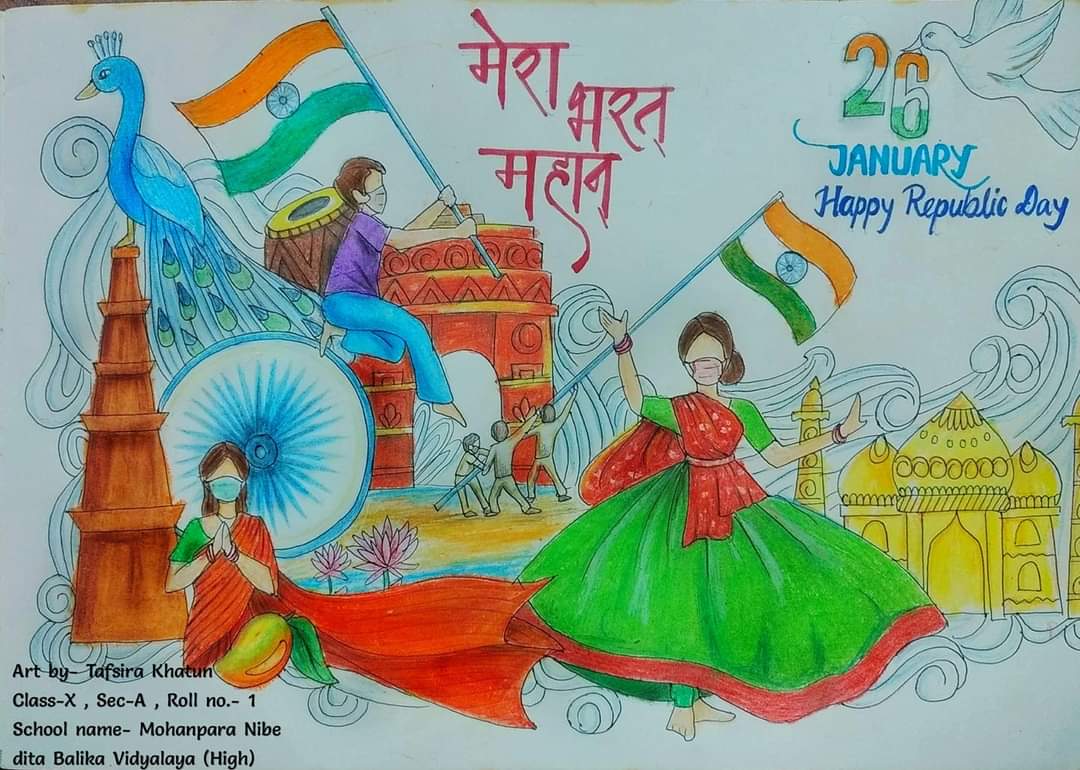 मेरा
भरत्
महान्
26
JANUARY
Happy Republic Day
Art by- Tafsira Khatun
Class-X , Sec-A , Roll no.- 1
School name- Mohanpara Nibe
dita Balika Vidyalaya (High)